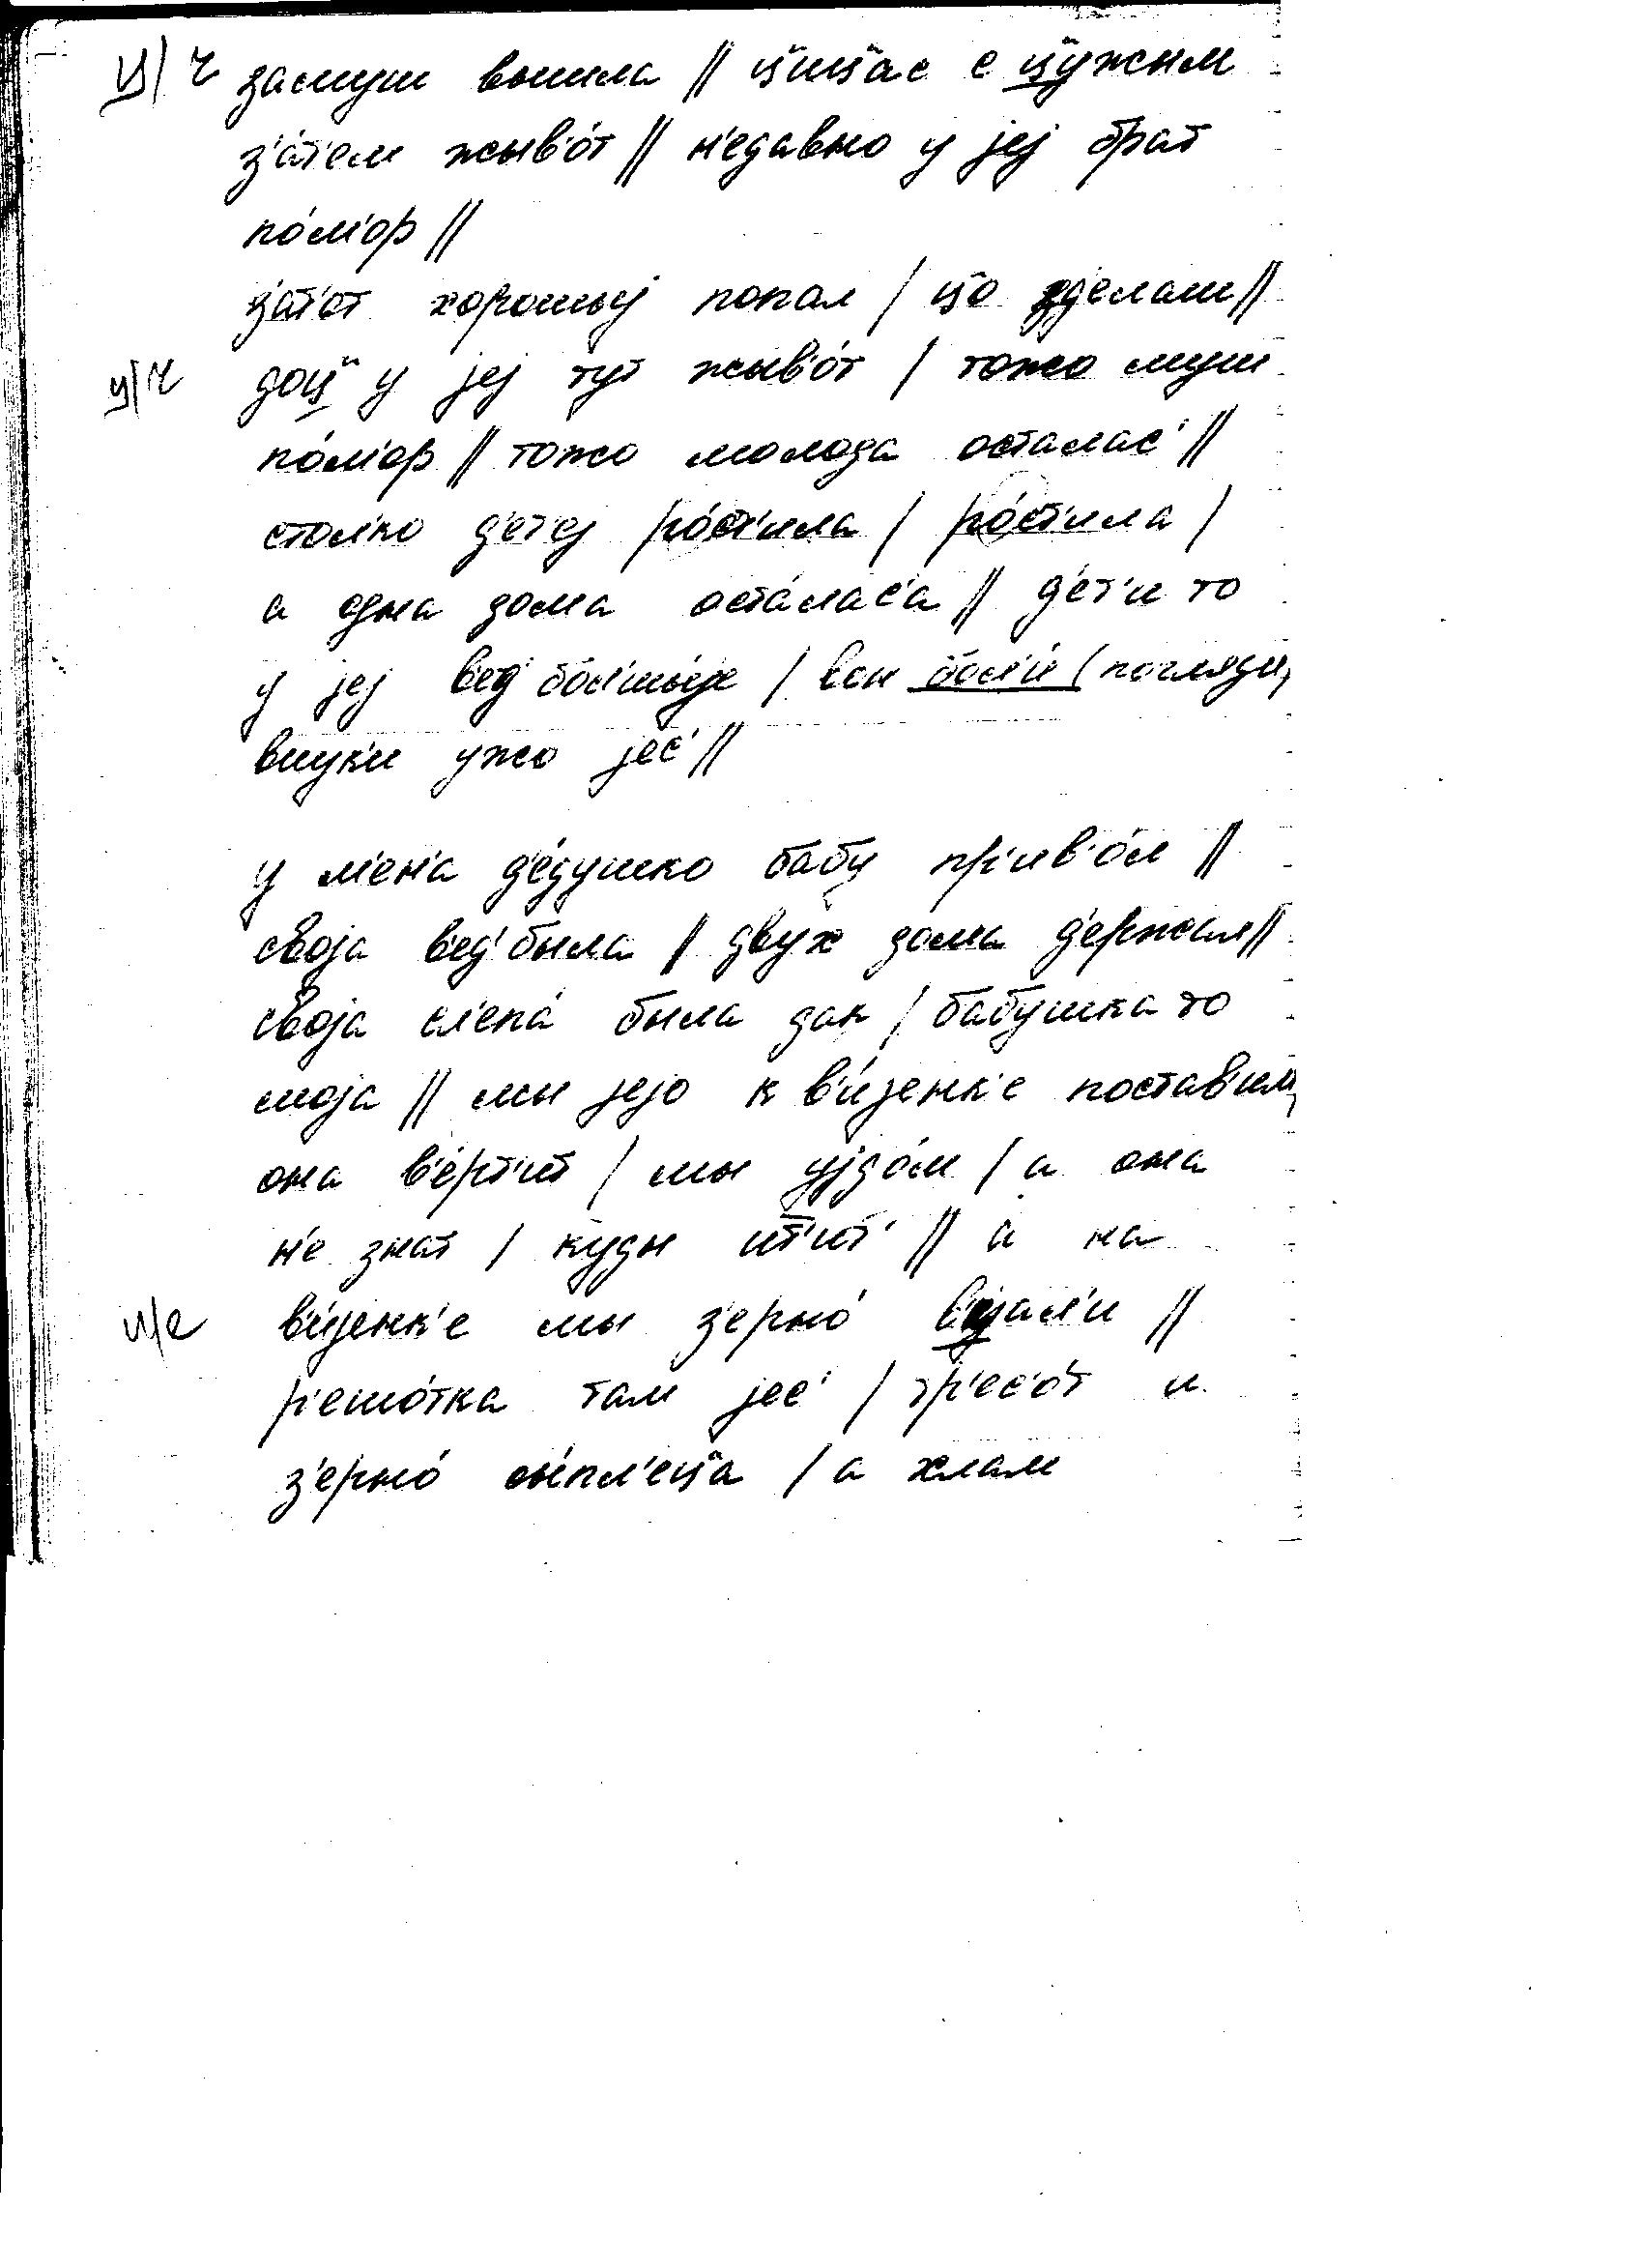 ц/ч замуш вышла // ц̌иц̌ас с ц̌ужым
з'а́т'ем жыв'о́т // н'едавно у jej брат
по́м'ор //
з'ат'от хорошыj попал / ц̌о зд'елаш //
ц/ч доц̌ у jej тут жыв'о́т / тожо муш
по́м'ор // тожо молода осталас' //
стол'ко д'етеj ро́ст'ила / ро́ст'ила /
а одна дома оста́лас'а // д'ет'и то
у jej в'ед' бол'шыjе / вон бол'и́ / погляди,
внук'и ужо jес' //
у м'ен'а д'е́душко бабу пр'ив'о́л //
своjа в'ед' была // двух дома д'ержал //
своjа сл'епа́ была дак / бабушка то
моjа // мы jejo к в'и́jенк'е постав'им,
она в'е́рт'ит / мы уjд'о́м / а она
н'е знат / куды ит'ит' // а на
и/е в'и́jенк'е мы з'ерно́ в'иjал'и //
р'ешо́тка там jес' / тр'ес'о́т и
з'ерно́ сы́пл'ец̌а / а хлам